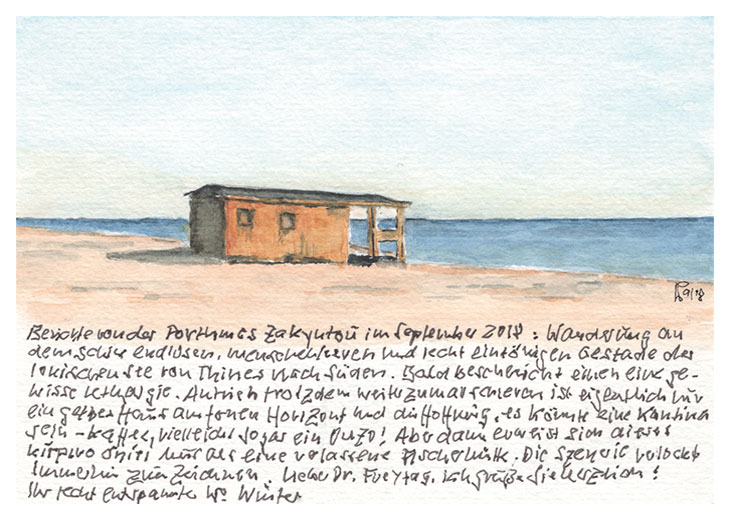 9/18
Berichte von der Porthmos Zakyntou im September 2018 : Wanderung an
dem schier endlosen, menschenleeren und recht eintönigen Gestade der
Ionischen See von Thines nach Süden. Bald beschleicht einen eine ge-
wisse Lethargie. Antrieb trotzdem weiterzumarschieren ist eigentlich nur
ein gelbes Haus am fernen Horizont und die Hoffnung, es könnte eine Kantina
sein - Kaffee, vielleicht sogar ein Ouzo! Aber dann erweist sich dieses
kitrino spiti nur als eine verlassene Fischerhütte. Die Szenerie verlockt
immerhin zum Zeichnen. Lieber Dr. Freytag, ich grüße Sie herzlich!
Ihr recht entspannter Winter